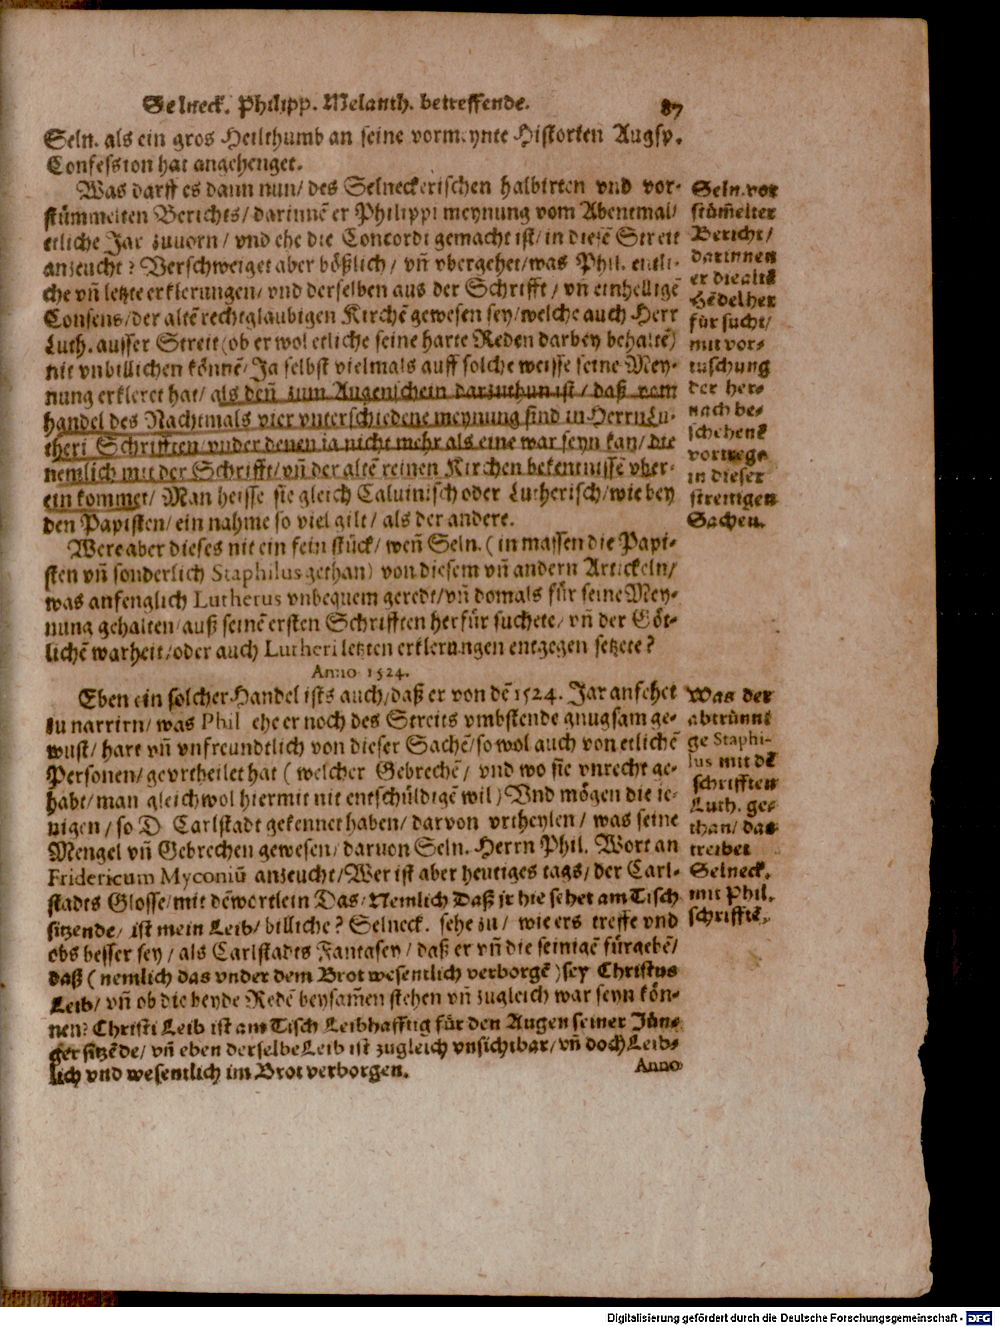 Selneck. Philipp. Melanth. betreffende. 87
Seln. als ein gros Heilthumb an seine vormeynte Historien Augsp.
Confession hat angehenget.
Was darff es dann nun/ des Selneckerischen halbirten vnd vor-
stümmelten Berichts/ darinnē er Philippi meynung vom Abentmal/
etliche Jar zuuorn/ vnd ehe die Concordi gemacht ist/ in diesē Streit
anzeucht? Verschweiget aber bößlich/ vñ vbergehet/ was Phil. entli-
che vñ letzte erklerungen/ vnd derselben aus der Schrifft/ vñ einhelligē
Consens/ der altē rechtglaubigen Kirchē gewesen sey/ welche auch Herr
Luth. ausser Streit (ob er wol etliche seine harte Reden darbey behalte)
nit vnbillichen könnē/ Ja selbst vielmals auff solche weisse seine Mey-
nung erkleret hat/ als deñ zum Augenschein darzuthun ist/ daß vom
handel des Nachtmals vier vnterschiedene meynung sind in Herrn Lu-
theri Schrifften/ vnder denen ia nicht mehr als eine war seyn kan/ die
nemlich mit der Schrifft/ vñ der altē reinen Kirchen bekentnissē vber-
ein kommet/ Man heisse sie gleich Caluinisch oder Lutherisch/ wie bey
den Papisten/ ein nahme so viel gilt/ als der andere.
Seln. vor
stüm̃elter
Bericht/
darinnen
er die altē
Hēdel her
für sucht/
mit vor-
tuschung
der her-
nach be-
schehenē
vortrege
in dieser
streitigen
Sachen.
Were aber dieses nit ein fein stück/ weñ Seln. (in massen die Papi-
sten vñ sonderlich Staphilus gethan) von diesem vñ andern Artickeln/
was anfenglich Lutherus vnbequem geredt/ vñ domals für seine Mey-
nung gehalten/ auß seinē ersten Schrifften herfür suchete/ vñ der Göt-
lichē warheit/ oder auch Lutheri letzten erklerungen entgegen setzete?
Anno 1524.
Eben ein solcher Handel ists auch/ daß er von dē 1524. Jar anfehet
zu narrirn/ was Phil ehe er noch des Streits vmbstende gnugsam ge-
wust/ hart vñ vnfreundtlich von dieser Sachē/ so wol auch von etlichē
Personen/ gevrtheilet hat (welcher Gebrechē/ vnd wo sie vnrecht ge-
habt/ man gleichwol hiermit nit entschüldigē wil) Vnd mögen die ie-
nigen/ so D Carlstadt gekennet haben/ darvon vrtheylen/ was seine
Mengel vñ Gebrechen gewesen/ daruon Seln. Herrn Phil. Wort an
Fridericum Myconiū anzeucht/ Wer ist aber heutiges tags/ der Carl-
stadts Glosse/ mit dē wörtlein Das/ Nemlich Daß jr hie sehet am Tisch
sitzende/ ist mein Leib/ billiche? Selneck. sehe zu/ wie ers treffe vnd
obs besser sey/ als Carlstadts Fantasey/ daß er vñ die seinigē fürgebē/
daß (nemlich das vnder dem Brot wesentlich verborgē) sey Christus
Leib/ vñ ob die beyde Redē beysam̃en stehen vñ zugleich war seyn kön-
nen? Christi Leib ist am Tisch Leibhafftig für den Augen seiner Jün-
ger sitzēde/ vñ eben derselbe Leib ist zugleich vnsichtbar/ vñ doch Leib-
lich vnd wesentlich im Brot verborgen.
Was der
abtrünni
ge Staphi-
lus mit dē
schrifften
Luth. ge-
than/ das
treibet
Selneck.
mit Phil.
schrifftē.
Anno
Digitalisierung gefördert durch die Deutsche Forschungsgemeinschaft - DFG